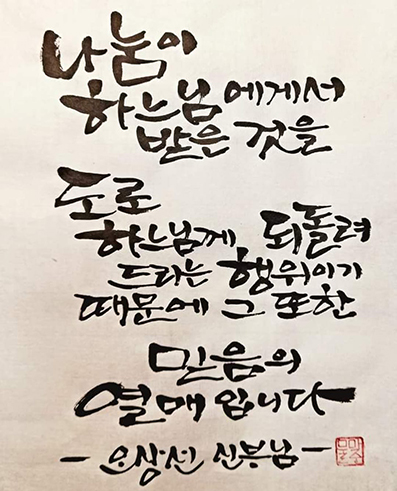 나눔이
하느님에게서
받은 것을
도로
하느님께 되돌려
드리는 행위이기
때문에 그 또한
믿음의
열매입니다
- 오상선 신부님 -